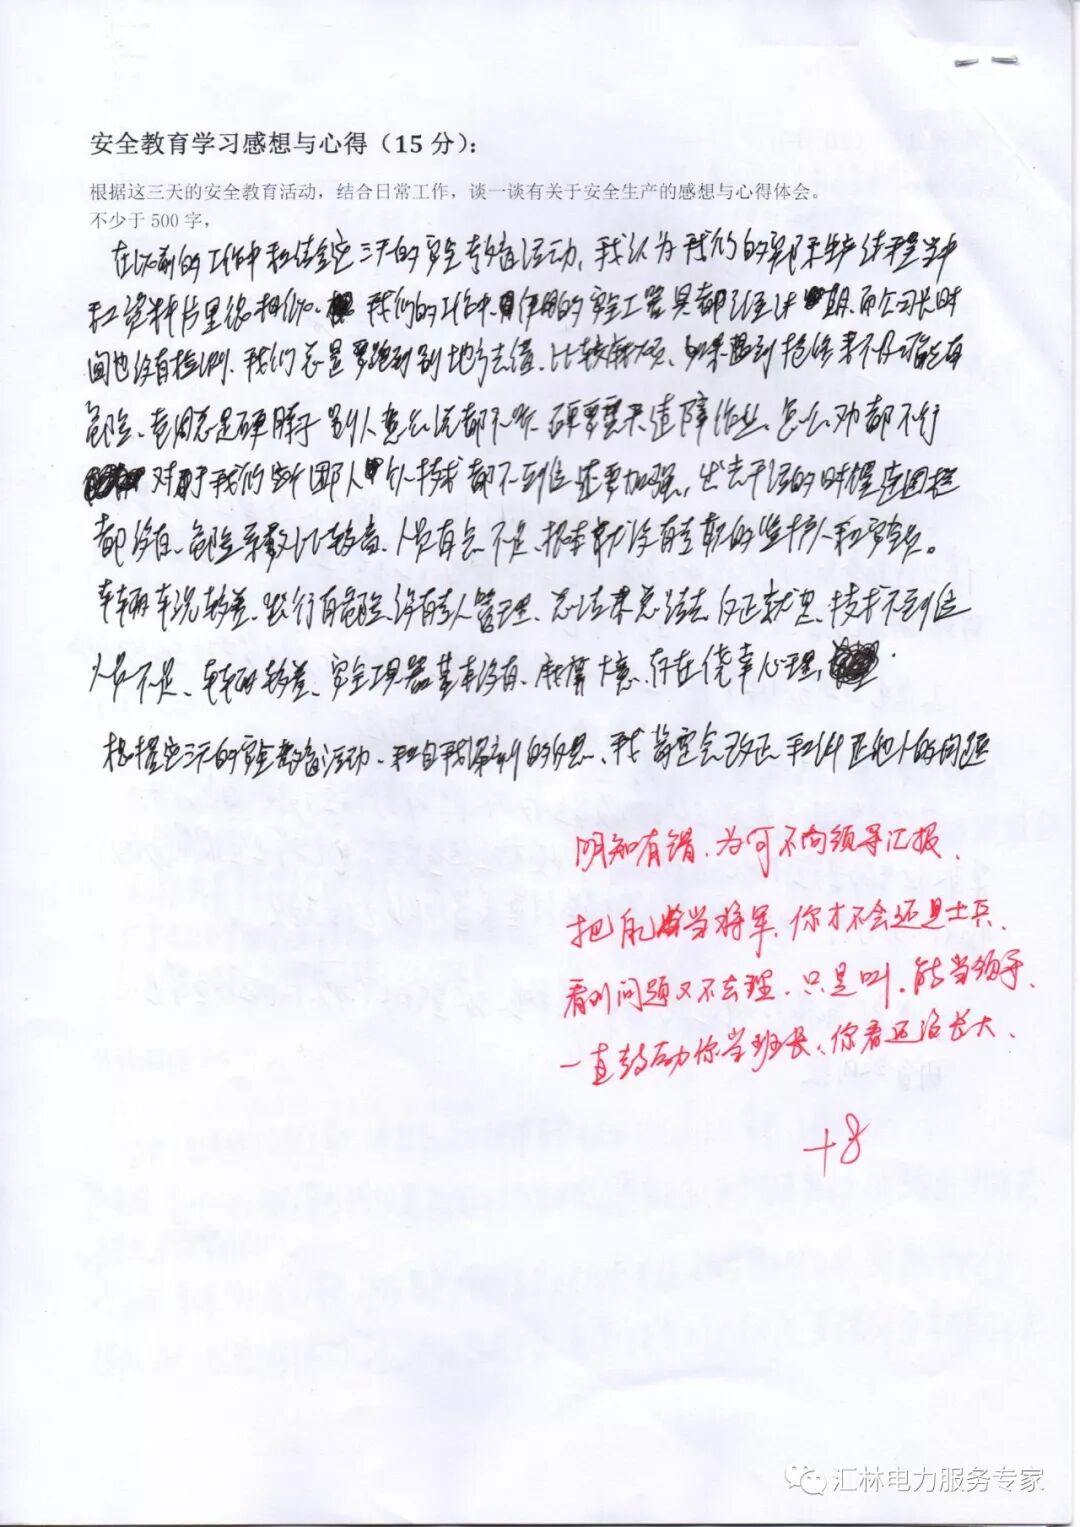 安全教育学习感想与心得（15 分）：
根据这三天的安全教育活动，结合日常工作，谈一谈有关于安全生产的感想与心得体会。
不少于 500 字，
在以前的工作中和结合这三天的安全教育活动，我认为我们的实际生产过程当中
和资料片里很相似、我们的工作中使用的安全工器具都已过期，而公司长时
间也没有检测、我们总是跑到别地方去借、比较麻烦、如果遇到抢修来不及可能有
危险、老周总是硬脖子别人怎么说都不听、硬要违章作业、怎么劝都不行
对于我们新团队人个人技术都不到位还要加强，出去干活的时候连围栏
都没有、危险系数比较高、人员有点不足、根本就没有专职的监护人和安全员。
车辆车况较差、出行有危险、没有专人管理、技术不到位
人员不足、车辆较差、安全工器具基本没有、麻痹大意、存在侥幸心理、
根据这三天的安全教育活动、和自我深刻的反思、我肯定会改正和纠正他人的问题
明知有错、为何不向领导汇报、
把自己当将军、你才不会还是士兵、
看到问题又不去理、只是叫，能当领导、
一直鼓动你当班长、你看还没长大、
+8
汇林电力服务专家